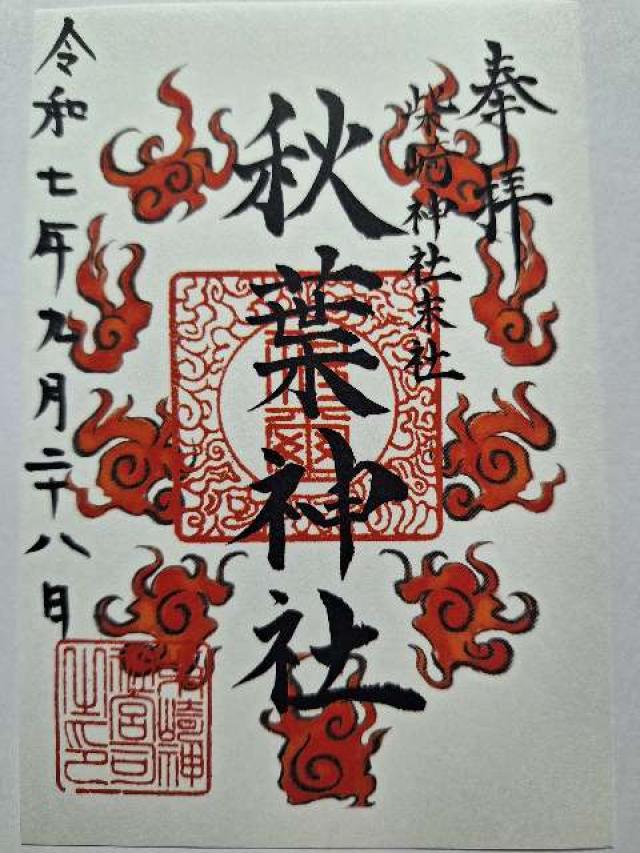 奉拝
柴崎神社末社
秋葉神社
令和七年九月二十八日